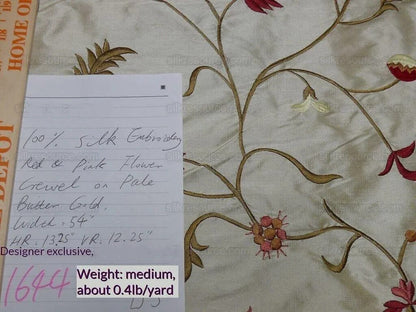 HOME DEPOT
100% Silk Embroidery
Red & Pink Flower
Crewel on Pale
Butter Gold.
Width. 54"
HR. 13.25" VR. 12.25"
Designer exclusive,
1644
Weight: medium,
about 0.4lb/yard